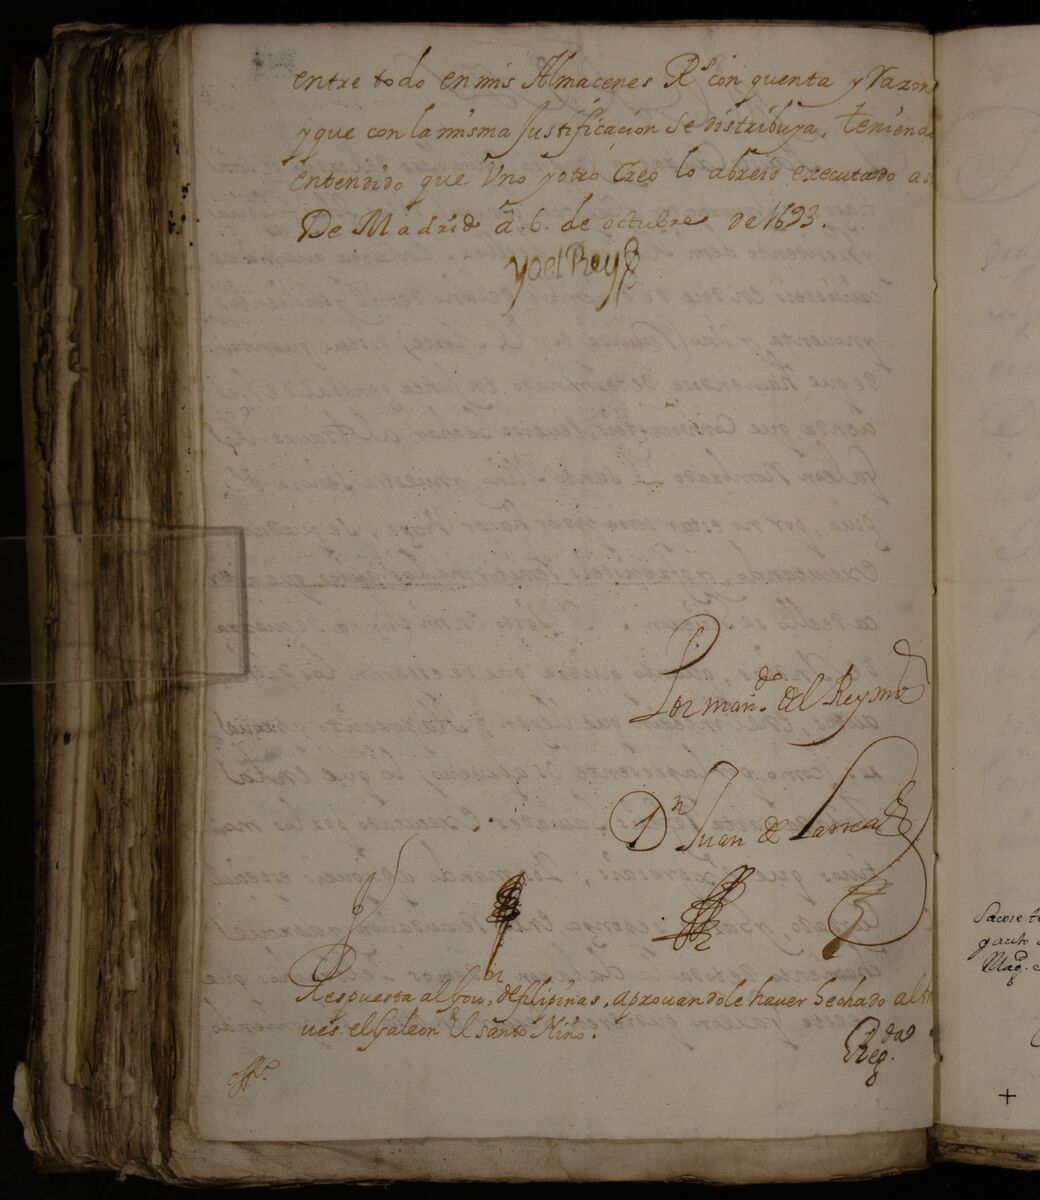 entre todo en mis Almacenes Rs con quenta y Razon
y que con la misma Justificacion se distribuya, teniendo
entendido que Uno y otro Creo lo abreis executado asi
De Madrid a 6. de octubre de 1693.
Yo el Rey
Por mando. del Rey nro
Dn Juan de Larrea
Respuesta al Gouor. de filipinas, aprouandole hauer hechado al tra
ues el Galeon El santo Niño.
offo.
Regda
Sacose
Magd.
+